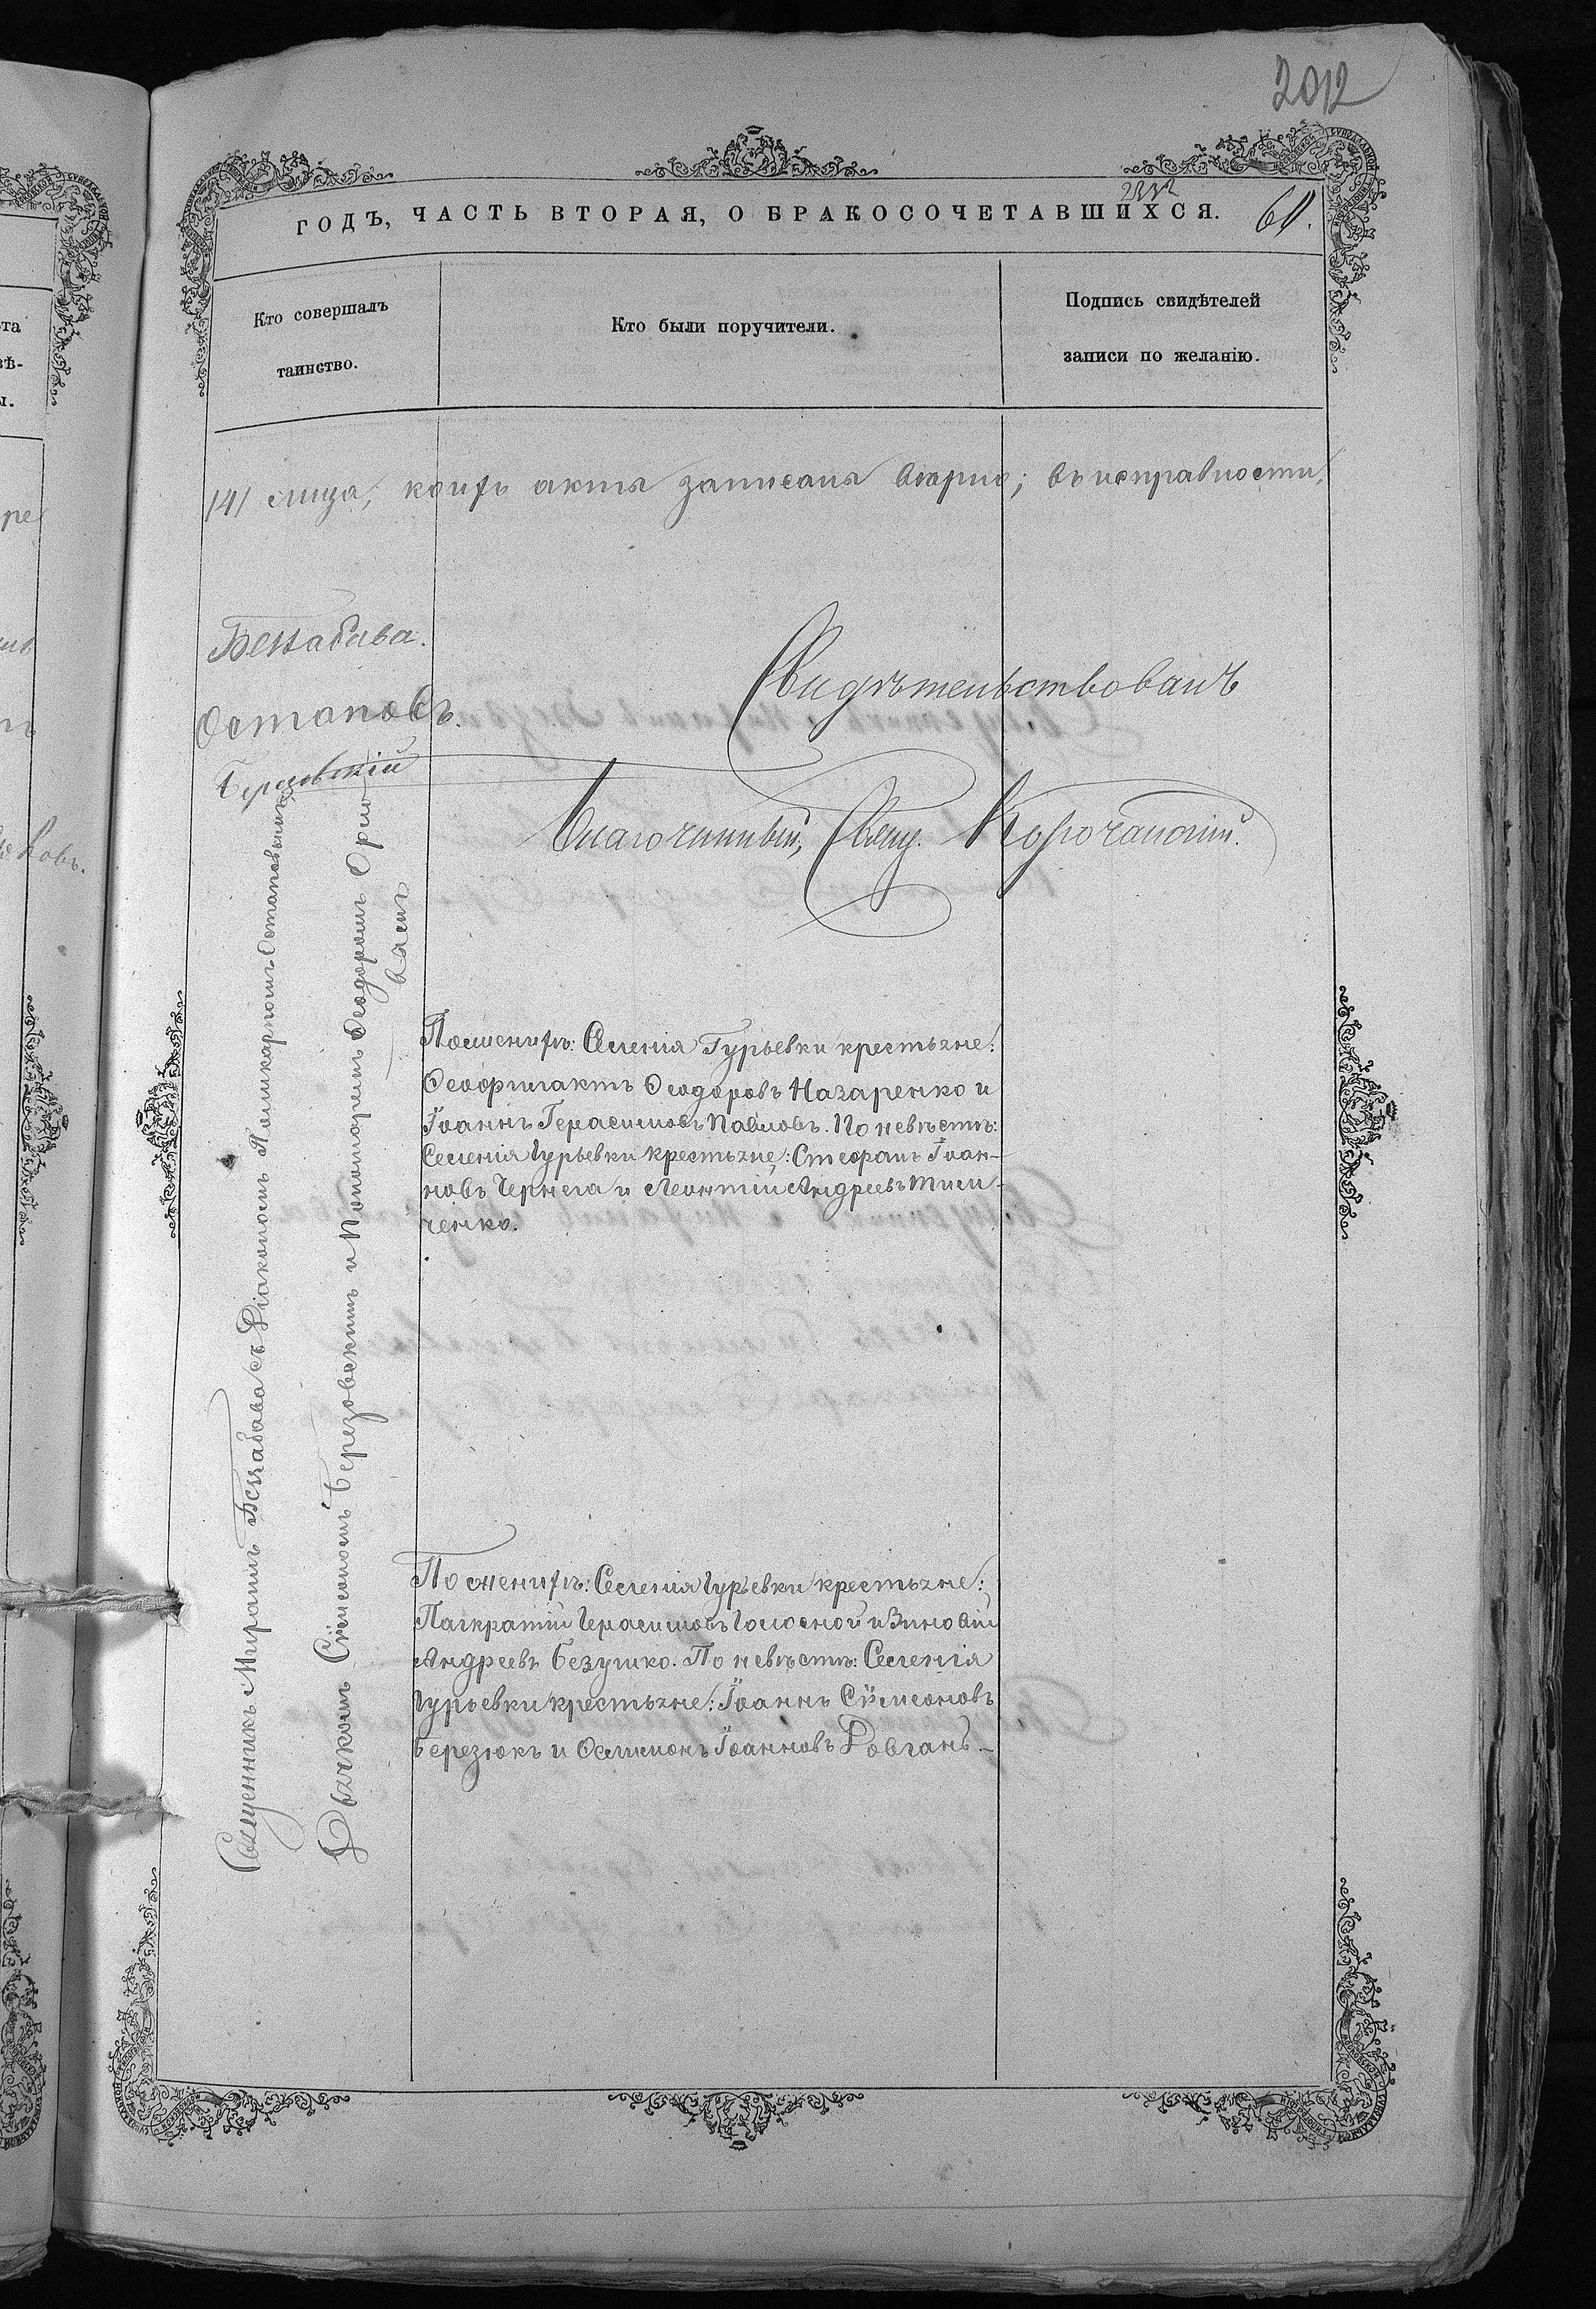 2012
ГОДЪ, ЧАСТЬ ВТОРАЯ, О БРАКОСОЧЕТАВШИХСЯ.
Кто совершалъ
таинство.
Кто были поручители.
Подпись свидѣтелей
записи по желанію.
141 лица, коихъ акты записаны вѣрно; въ исправности,
Остаповъ.
Свидѣтельствовалъ
Благочинный, Свящ. Корочанскій.
Священникъ Миронъ съ Діакономъ Поликарпомъ Остаповымъ
Дьячкомъ Сѵмеономъ Березовскимъ и Пономаремъ Ѳеодоромъ
По женихѣ: Селенія Гурьевки крестьяне:
Ѳеофилактъ Ѳеодоровъ Назаренко и
Іоаннъ Герасимовъ Павловъ. По невѣстѣ:
Селенія Гурьевки крестьяне: Стефанъ Іоан-
новъ Чернега и Леонтій Андреевъ Тими-
ченко.
По женихѣ: Селенія Гурьевки крестьяне:
Панкратій Герасимовъ и Зиновій
Андреевъ Безушко. По невѣстѣ: Селенія
Гурьевки крестьяне: Іоаннъ Сѵмеоновъ
Березюкъ и Филимонъ Іоанновъ Ровганъ.